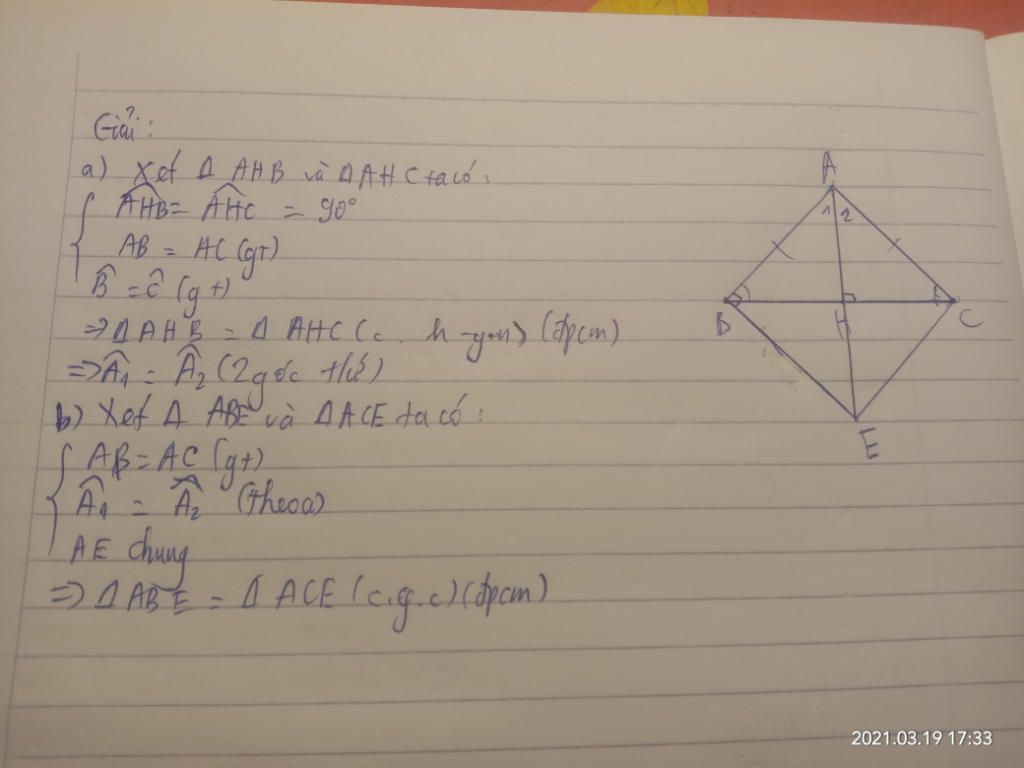 Giải:
a) Xét Δ AHB và Δ AHC ta có:
AHB = AHC = 90°
AB = AC (gt)
B̂ = Ĉ (gt)
⇒ Δ AHB = Δ AHC (c. h - g.n) (đpcm)
⇒ Â1 = Â2 (2 góc t/ứ)
b) Xét Δ ABE và Δ ACE ta có:
AB = AC (gt)
Â1 = Â2 (theo a)
AE chung
⇒ Δ ABE = Δ ACE (c.g.c) (đpcm)
A
1 2
B
H
C
E
2021.03.19 17:33